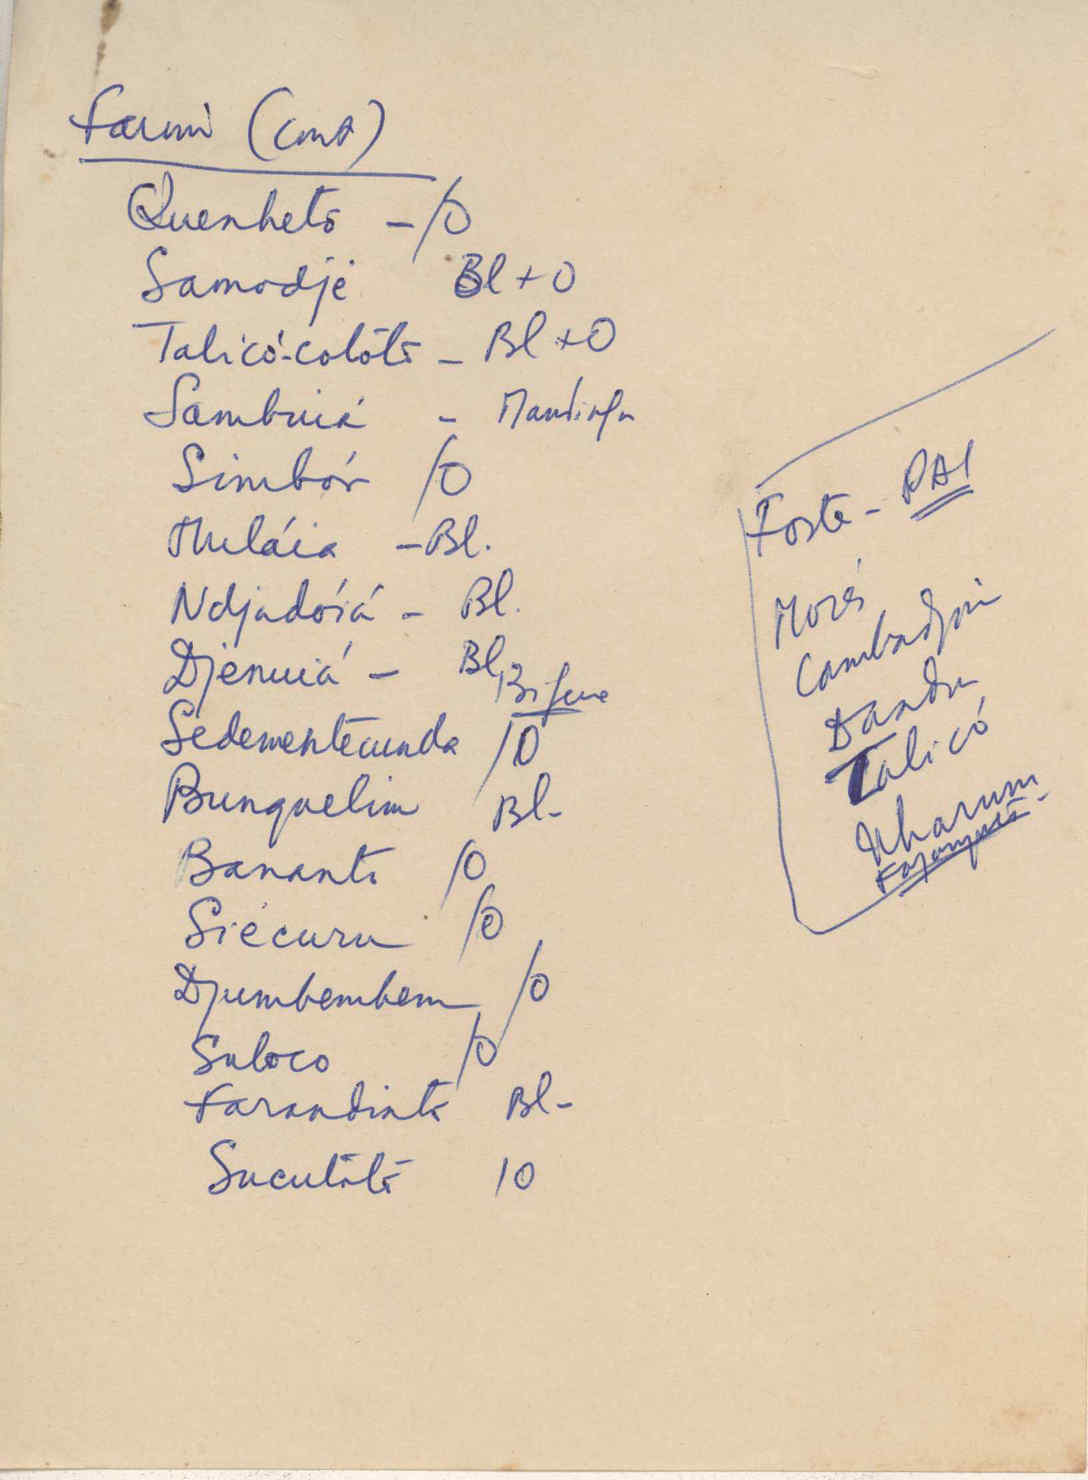 Farim (cont)
Quenhetó - /O
Samodjé Bl + O
Talicó-colótó - Bl + O
Sambuiá - Mandinga
Simbór /O
Muláia - Bl.
Ndjadóiá - Bl.
Djenuiá - Bl
Sedementecunda /O
Bunquelim Bl-
Bananto /O
Siécuru /O
Djumbembem /O
Suloco /O
Farandinto Bl-
Sucutótó /O
Foste - PAI
Morés
Cambadjui
Dandu
Talicó
Uharum